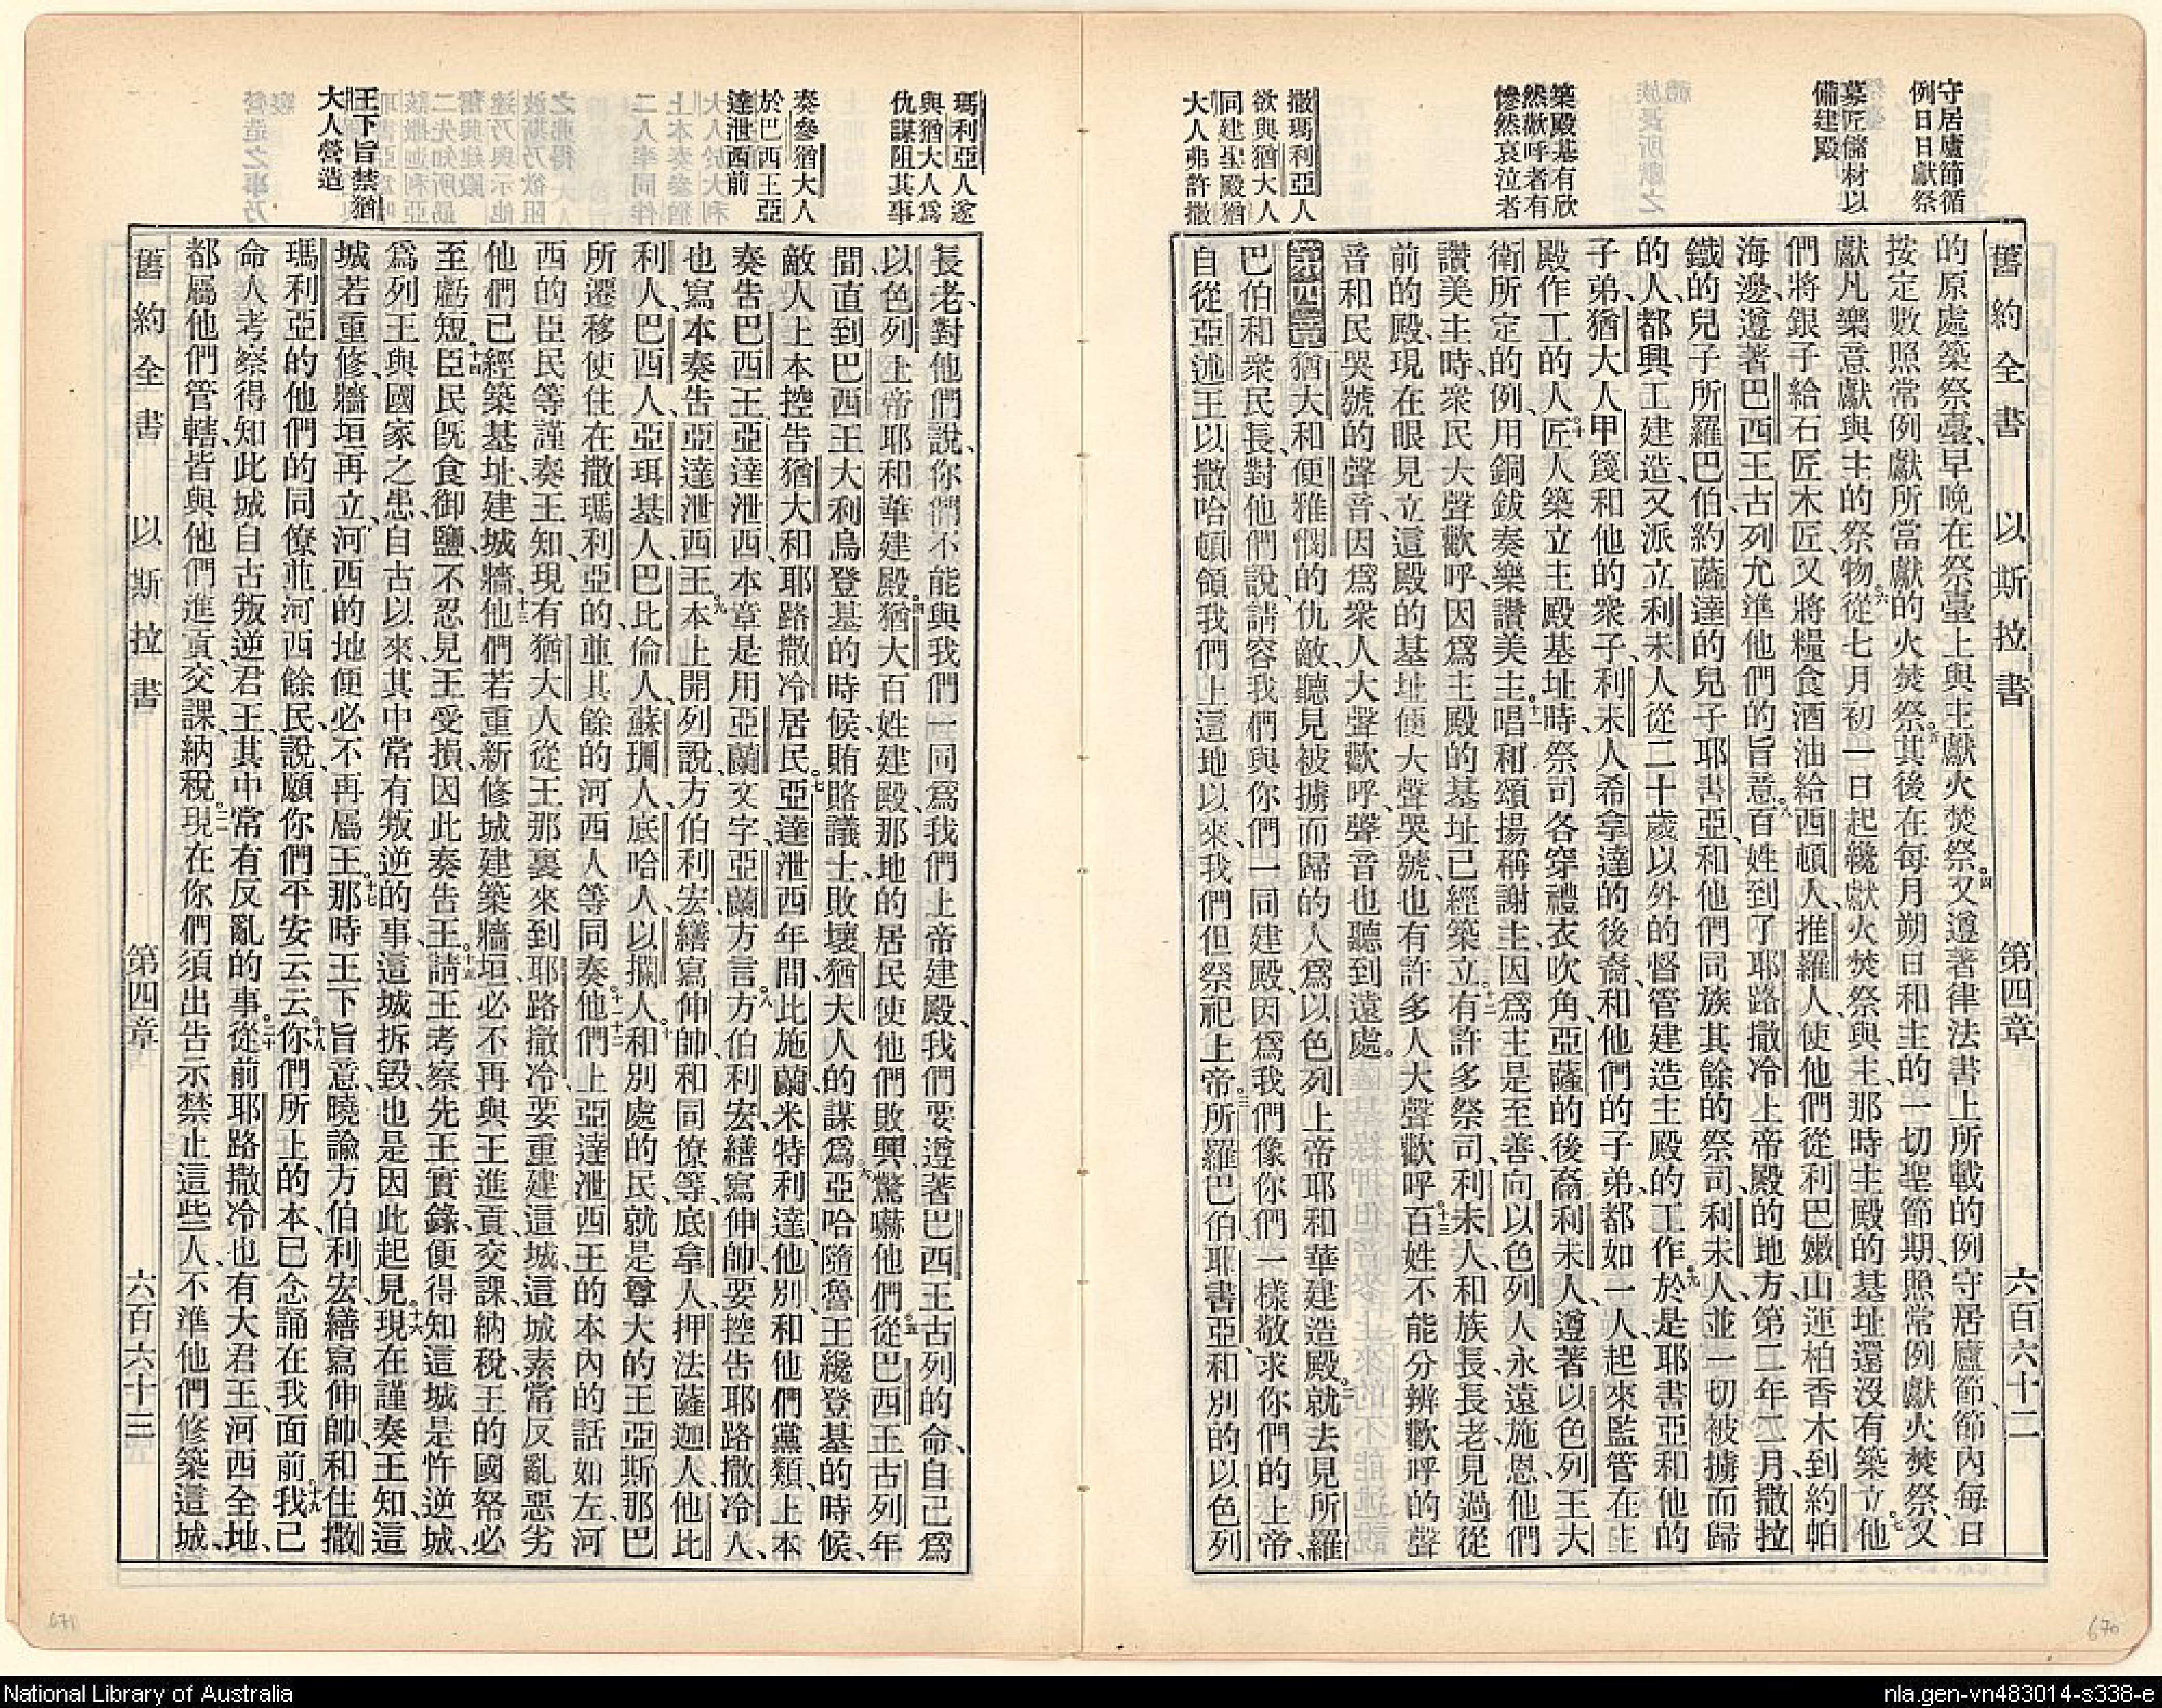 守居廬節循
例日日獻祭
募匠儲材以
備建殿
築殿基有欣
然歡呼者有
慘然哀泣者
撒瑪利亞人
欲與猶大人
同建聖殿猶
大人弗許撒
舊約全書 以斯拉書 第四章 六百六十二
的原處築祭臺、早晚在祭臺上與主獻火焚祭、四又遵著律法書上所載的例、守居廬節、節內每日
按定數照常例獻所當獻的火焚祭、五其後在每月朔日和主的一切聖節期、照常例獻火焚祭、又
獻凡樂意獻與主的祭物、六從七月初一日起纔獻火焚祭與主、那時主殿的基址還沒有築立、七他
們將銀子給石匠木匠、又將糧食酒油給西頓人、推羅人、使他們從利巴嫩山運柏香木到約帕
海邊、遵著巴西王古列允準他們的旨意、八百姓到了耶路撒冷上帝殿的地方、第二年二月、撒拉
鐵的兒子所羅巴伯、約薩達的兒子耶書亞、和他們同族其餘的祭司、利未人、並一切被擄而歸
的人、都興工建造、又派立利未人從二十歲以外的督管建造主殿的工作、九於是耶書亞和他的
子弟、猶大人甲篾和他的衆子、利未人希拿達的後裔、和他們的子弟、都如一人、起來監管在主
殿作工的人、十匠人築立主殿基址時、祭司各穿禮衣吹角、亞薩的後裔利未人、遵著以色列王大
衛所定的例、用銅鈸奏樂讚美主、十一唱和頌揚稱謝主、因爲主是至善、向以色列人永遠施恩、他們
讚美主時、衆民大聲歡呼、因爲主殿的基址已經築立、十二有許多祭司、利未人、和族長、長老、見過從
前的殿、現在眼見立這殿的基址、便大聲哭號、也有許多人大聲歡呼、十三百姓不能分辨歡呼的聲
音和民哭號的聲音、因爲衆人大聲歡呼、聲音也聽到遠處。
第四章猶大和便雅憫的仇敵、聽見被擄而歸的人、爲以色列上帝耶和華建造殿、二就去見所羅
巴伯和衆民長、對他們說、請容我們與你們一同建殿、因爲我們像你們一樣敬求你們的上帝、
自從亞述王以撒哈頓領我們上這地以來、我們但祭祀上帝、三所羅巴伯、耶書亞、和別的以色列
瑪利亞人遂
與猶大人爲
仇謀阻其事
奏參猶大人
於巴西王亞
達泄西前
王下旨禁猶
大人營造
長老、對他們說、你們不能與我們一同爲我們上帝建殿、我們要遵著巴西王古列的命、自己爲
以色列上帝耶和華建殿、四猶大百姓建殿、那地的居民使他們敗興、驚嚇他們、五從巴西王古列年
間、直到巴西王大利烏登基的時候、賄賂議士、敗壞猶大人的謀爲、六亞哈隨魯王纔登基的時候、
敵人上本控告猶大和耶路撒冷居民、七亞達泄西年間、比施蘭、米特利達、他別和他們黨類、上本
奏告巴西王亞達泄西、本章是用亞蘭文字、亞蘭方言、八方伯利宏、繕寫伸帥、要控告耶路撒冷人、
也寫本奏告亞達泄西王、九本上開列說、方伯利宏、繕寫伸帥、和同僚等、底拿人、押法薩迦人、他比
利人、巴西人、亞珥基人、巴比倫人、蘇珊人、底哈人、以攔人、十和別處的民、就是尊大的王亞斯那巴
所遷移使住在撒瑪利亞的、並其餘的河西人等同奏、十一十二他們上亞達泄西王的本內的話如左、河
西的臣民等謹奏王知、現有猶大人從王那裏來到耶路撒冷、要重建這城、這城素常反亂惡劣
他們已經築基址、建城牆、十三他們若重新修城、建築牆垣、必不再與王進貢、交課、納稅、王的國帑必
至虧短、十四臣民旣食御鹽、不忍見王受損、因此奏告王、十五請王考察先王實錄、便得知這城是忤逆城、
爲列王與國家之患、自古以來、其中常有叛逆的事、這城拆毀、也是因此起見、十六現在謹奏王知、這
城若重修、牆垣再立、河西的地便必不再屬王、十七那時王下旨意、曉諭方伯利宏、繕寫伸帥、和住撒
瑪利亞的他們的同僚並河西餘民、說、願你們平安云云、十八你們所上的本、已念誦在我面前、十九我已
命人考察、得知此城自古叛逆君王、其中常有反亂的事、二十從前耶路撒冷也有大君王、河西全地、
都屬他們管轄、皆與他們進貢、交課、納稅、二一現在你們須出告示禁止這些人、不準他們修築這城、
舊約全書 以斯拉書 第四章 六百六十三
671
670
National Library of Australia
nla.gen-vn483014-s338-e